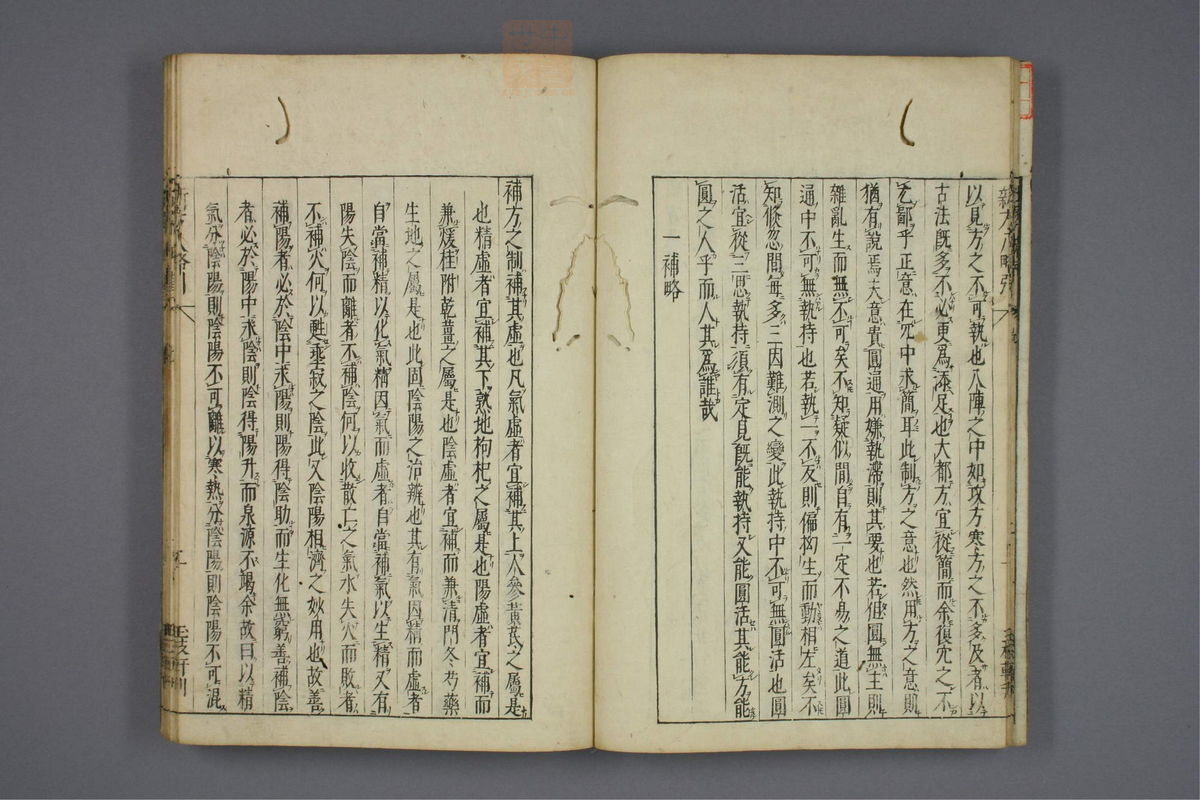 以見方之不可執也八陣之中如攻方寒方之不多及者以
古法既多不必更爲添足也大都方宜從簡而余復冗之不
乞鄙乎正意在冗中求簡耳此制方之意也然用方之意則
猶有說焉夫意貴圓通用嫌執滯則其要也若但圓無主則
雜亂生而無不可矣不知疑似間自有一定不易之道此圓
通中不可無執持也若執一不反則偏拘生而動相左矣不
知倏忽間每多三因難測之變此執持中不可無圓活也圓
活宜從三思執持須有定見既能執持又能圓活其能方能
圓之人乎而人其爲誰哉
一補略
補方之制補其虛也凡氣虛者宜補其上人參黃芪之屬是
也精虛者宜補其下熟地枸杞之屬是也陽虛者宜補而
兼煖桂附乾薑之屬是也陰虛者宜補而兼清門冬芍藥
生地之屬是也此固陰陽之治辨也其有氣因精而虛者
自當補精以化氣精因氣而虛者自當補氣以生精又有
陽失陰而離者不補陰何以收散亡之氣水失火而敗者
不補火何以甦垂寂之陰此又陰陽相濟之妙用也故善
補陽者必於陰中求陽則陽得陰助而生化無窮善補陰
者必於陽中求陰則陰得陽升而泉源不竭余故曰以精
氣分陰陽則陰陽不可離以寒熱分陰陽則陰陽不可混